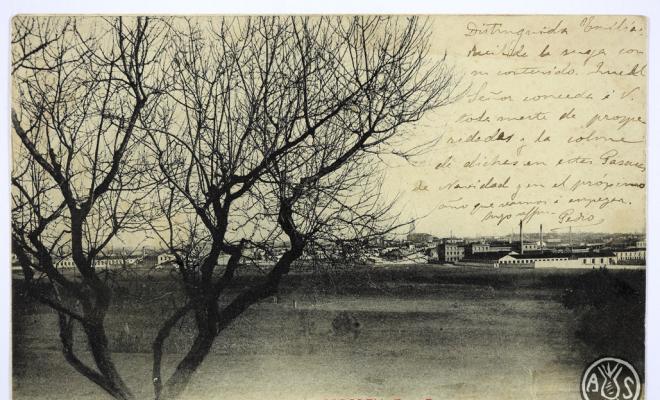 Distinguida Emilia.
Recibida la suya con
su contenido. Quiera el
Señor conceda á V.
toda suerte de prospe
ridades y la colme
de dichas en estas Pascuas
de Navidad y en el próximo
año que vamos á empezar.
Suyo affmo.
Pedro
A S